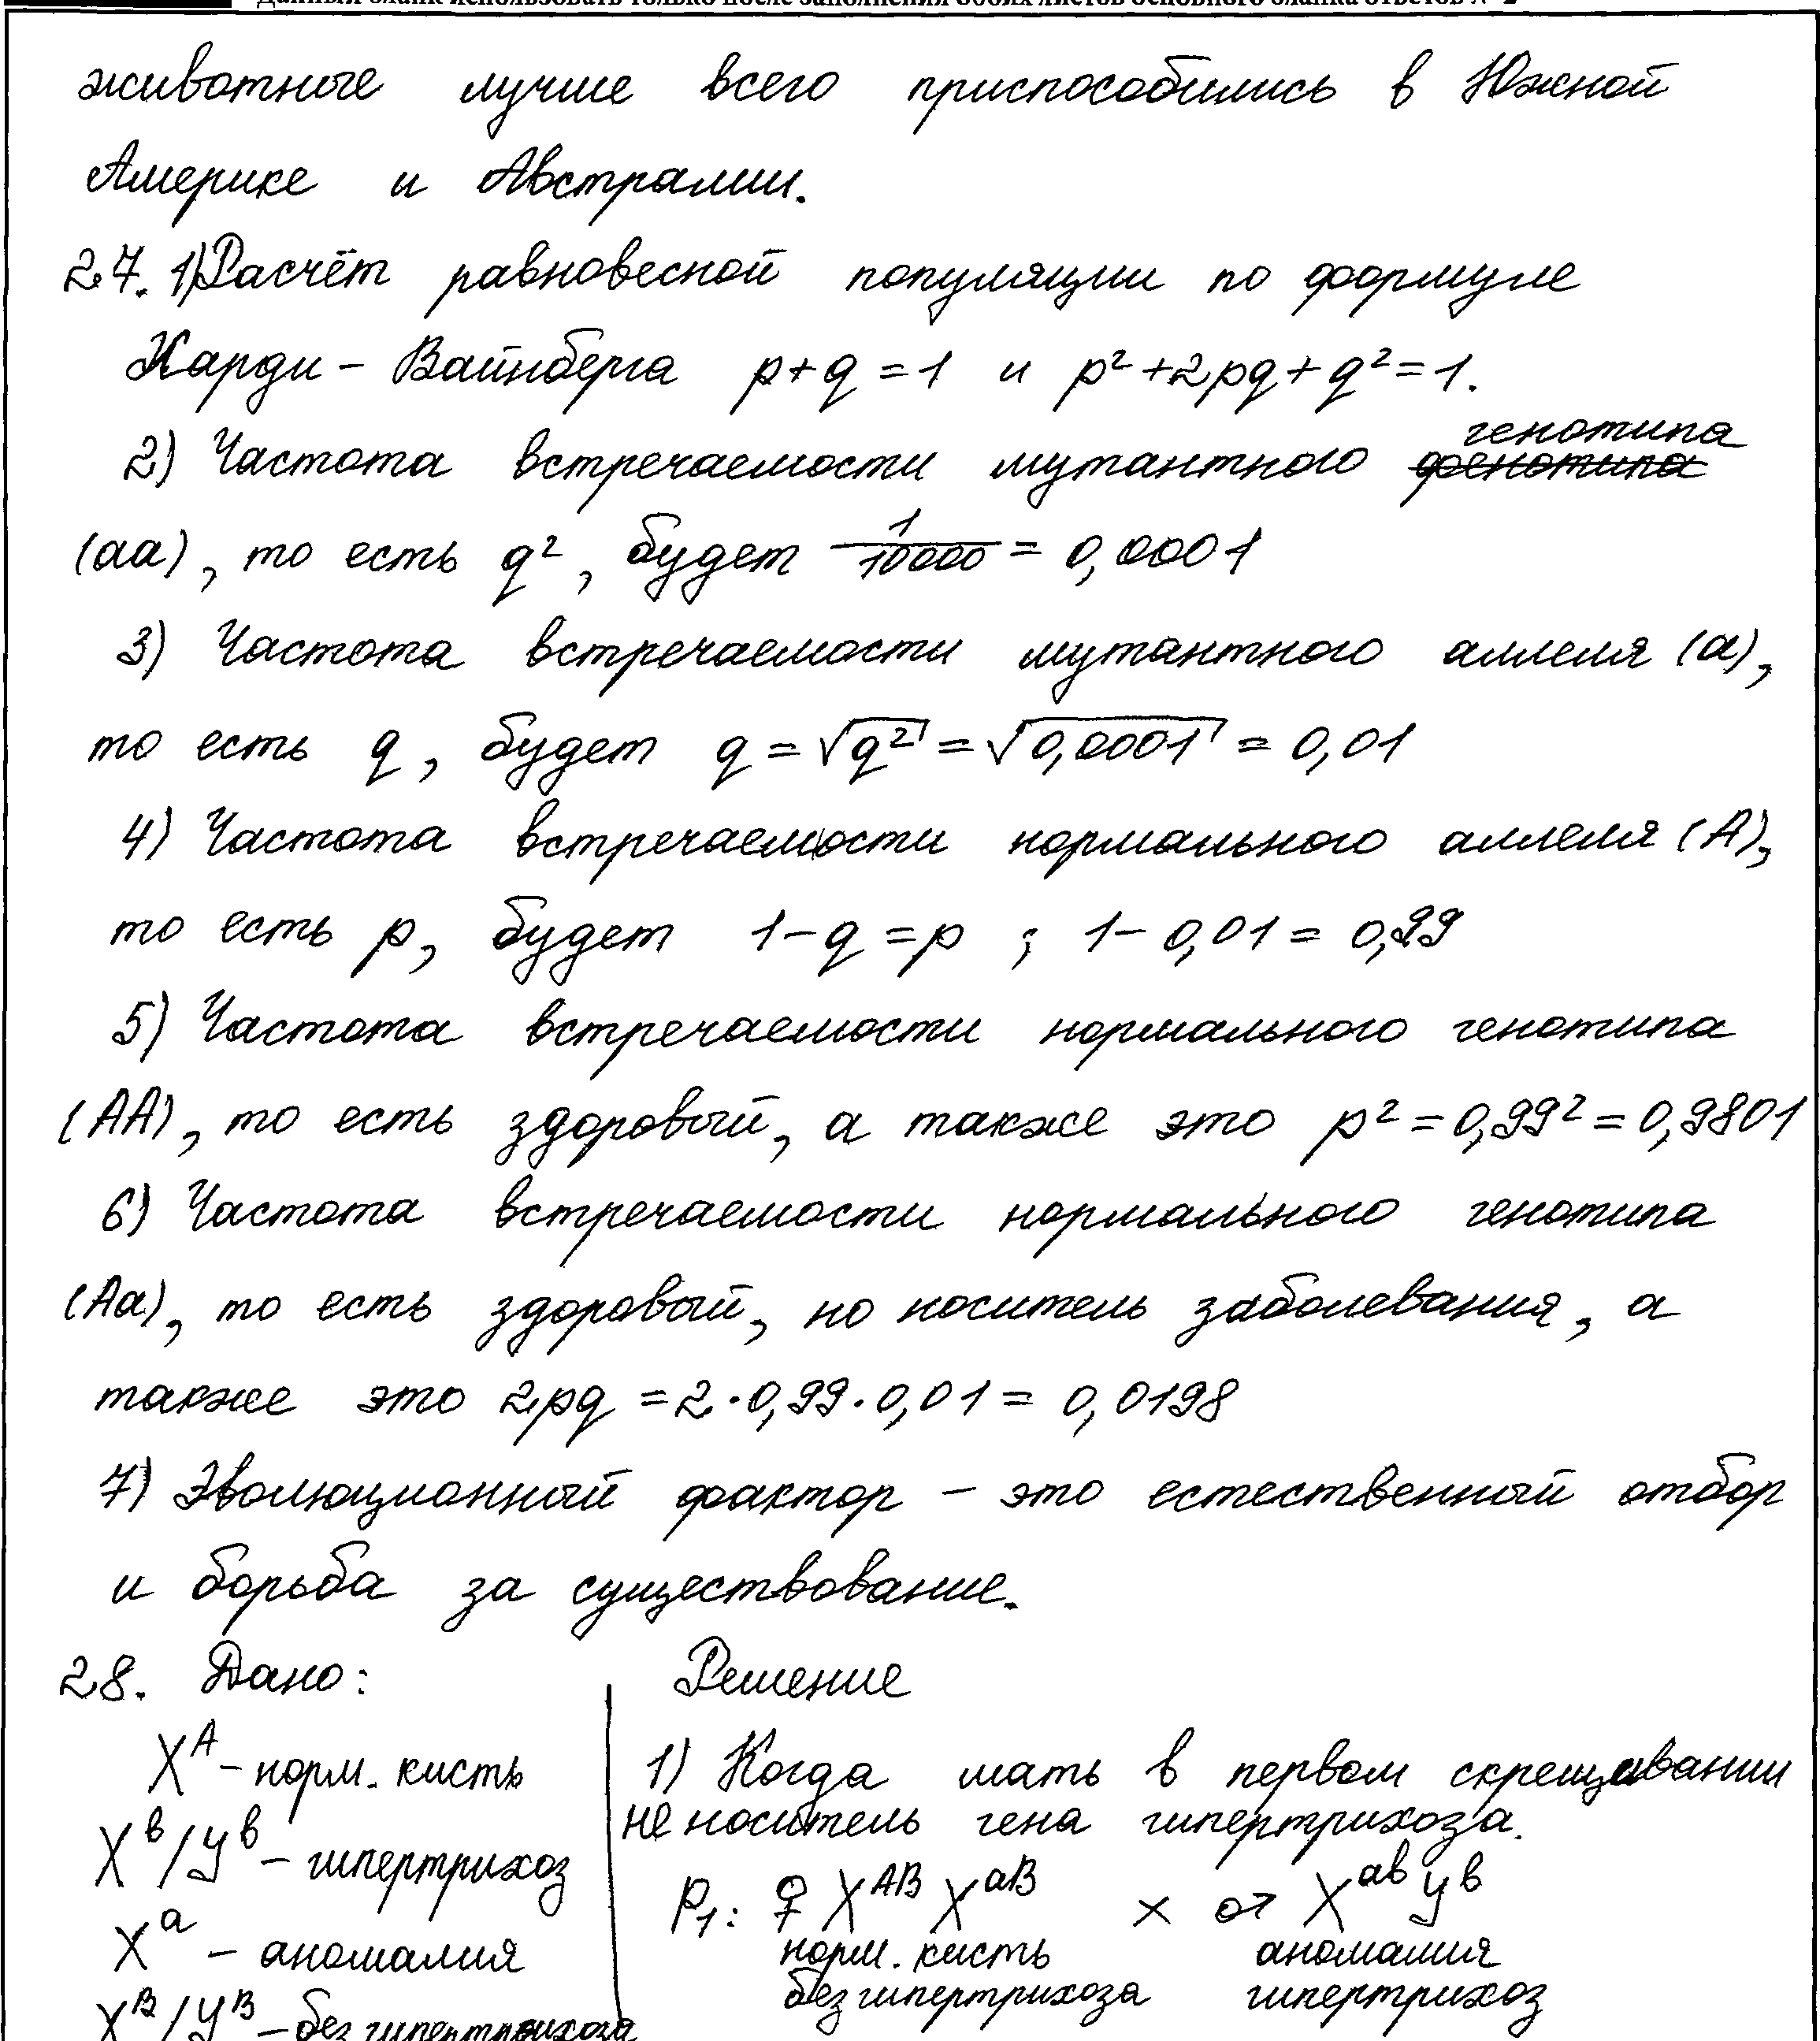 Данный бланк использовать только после заполнения обоих листов основного бланка ответов № 2
животные лучше всего приспособились в Южной
Америке и Австралии.
27. 1) Расчёт равновесной популяции по формуле
Харди - Вайнберга p+q=1 и p²+2pq+q²=1.
генотипа
2) Частота встречаемости мутантного фенотипа
(аа), то есть q², будет 1/10000 = 0,0001
3) Частота встречаемости мутантного аллеля (а),
то есть q, будет q = √q² = √0,0001 = 0,01
4) Частота встречаемости нормального аллеля (А),
то есть p, будет 1-q=p ; 1-0,01=0,99
5) Частота встречаемости нормального генотипа
(АА), то есть здоровый, а также это p²=0,99²=0,9801
6) Частота встречаемости нормального генотипа
(Аа), то есть здоровый, но носитель заболевания, а
также это 2pq =2·0,99·0,01= 0,0198
7) Эволюционный фактор – это естественный отбор
и борьба за существование.
28. Дано: Решение
X^A – норм. кисть 1) Когда мать в первом скрещивании
не носитель гена гипертрихоза.
X^b/Y^b – гипертрихоз
P₁: ♀ X^AB X^aB × ♂ X^ab Y^b
X^a – аномалия норм. кисть аномалия
без гипертрихоза гипертрихоз
X^B/Y^B – без гипертрихоза